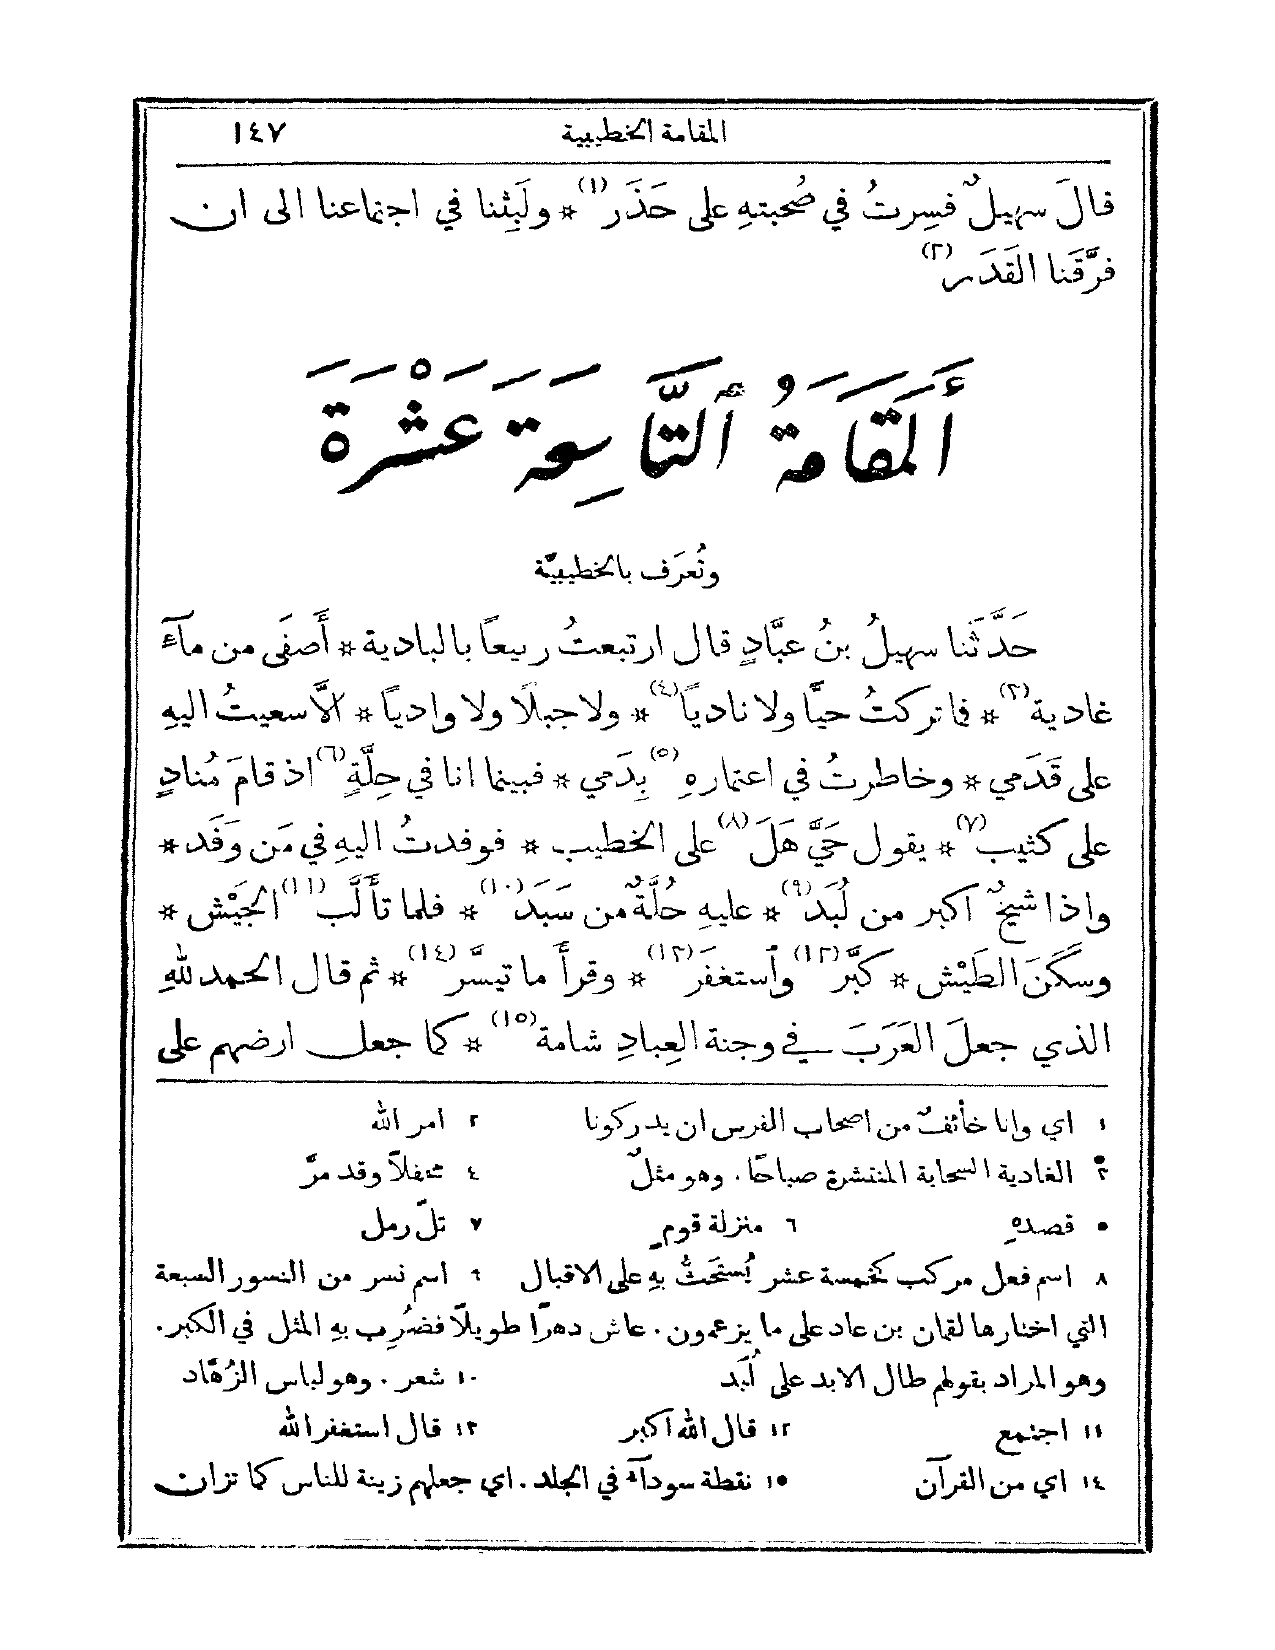 المقامة الخطيبية ١٤٧
قالَ سهيلٌ فسِرتُ في صُحبتهِ على حَذَر(١) * ولَبِثنا في اجتماعنا الى ان
فرَّقَنا القَدَر(٢)
أَلمَقَامَةُ ٱلتَّاسِعَةَ عَشْرَةَ
وتُعرَف بالخطيبيَّة
حَدَّثَنا سهيلُ بنُ عبَّادٍ قال ارتبعتُ ربيعاً بالبادية * أَصفَى من مآءَ
غادية(٣) * فما تركتُ حيًّا ولا ناديًا(٤) * ولا جبلًا ولا واديًا * الَّا سعيتُ اليهِ
على قَدَمي * وخاطرتُ في اعتمارهِ(٥) بِدَمي * فبينما انا في حِلَّةٍ(٦) اذ قامَ مُنادٍ
على كثيب(٧) * يقول حَيَّ هَلَ(٨) على الخطيب * فوفدتُ اليهِ في مَن وَفَد *
واذا شيخٌ اكبر من لُبَد(٩) * عليهِ حُلَّةٌ من سَبَد(١٠) * فلما تأَلَّب(١١) الجَيْش *
وسكَنَ الطَيْش * كبَّر(١٢) وأستغفَر(١٣) * وقرأَ ما تيسَّر(١٤) * ثم قال الحمد للهِ
الذي جعلَ العَرَبَ في وجنة العِبادِ شامة(١٥) * كما جعل ارضهم على
١ اي وانا خآئفٌ من اصحاب الفرس ان يدركونا ٢ امر الله
٣ الغادية السحابة المنتشرة صباحًا. وهو مثلٌ ٤ محفلًا وقد مرَّ
٥ قصدهِ ٦ منزلة قومٍ ٧ تلّ رمل
٨ اسم فعل مركب كخمسة عشر يُستحَثُّ بهِ على الاقبال ٩ اسم نسر من النسور السبعة
التي اختارها لقمان بن عاد على ما يزعمون. عاش دهرًا طويلًا فضُرِب بهِ المثل في الكبر.
وهو المراد بقولهم طال الابد على لُبَد ١٠ شعر. وهو لباس الزُهَّاد
١١ اجتمع ١٢ قال الله اكبر ١٣ قال استغفر الله
١٤ اي من القرآن ١٥ نقطة سودآءَ في الجلد. اي جعلهم زينة للناس كما تزان